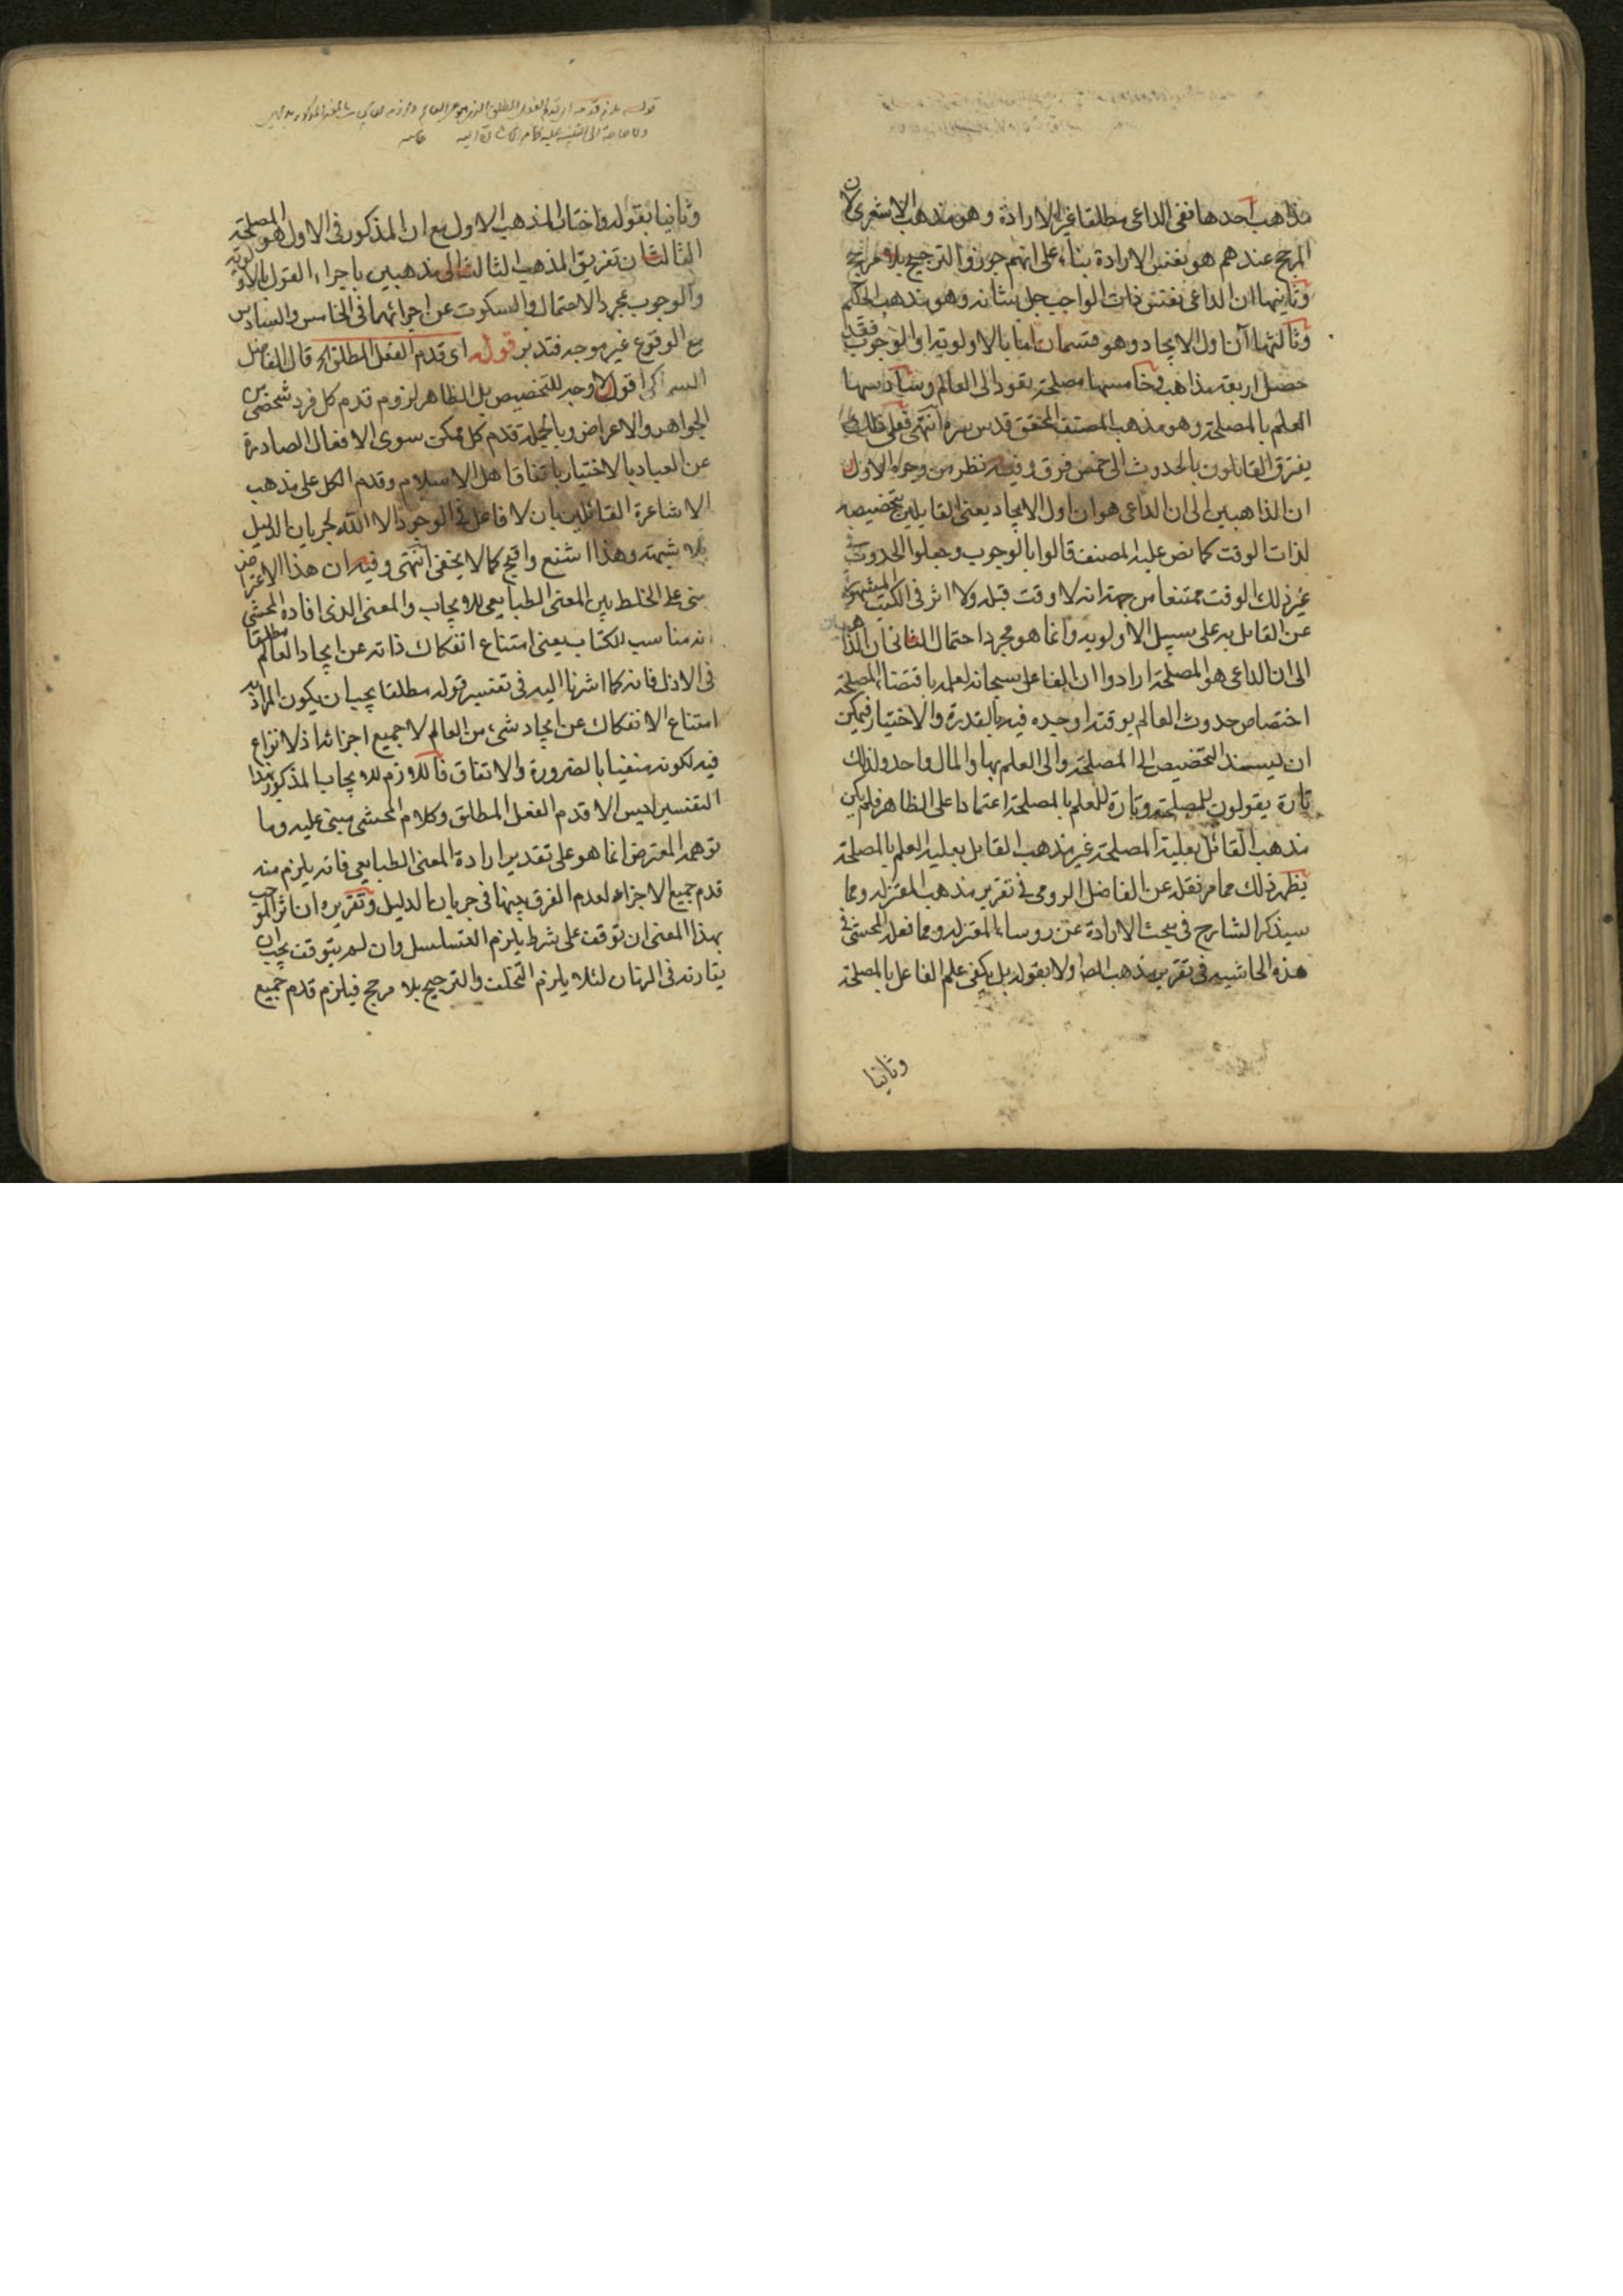 مذاهب احدها نفى الداعى مطلقا غير الارادة وهو مذهب الاشعرى لان
المرجح عندهم هو نفس الارادة بناء على انهم جوزوا الترجيح بلا مرجح
وثانيها ان الداعى نفس ذات الواجب جل شانه وهو مذهب الحكيم
وثالثها آن اول الايجاد وهو قسمان اما بالاولوية او الوجوب فقد
حصل اربعة مذاهب وخامسها مصلحة يقود الى العالم وسادسها
العلم بالمصلحة وهو مذهب المصنف المحقق قدس سره انتهى فعلى ذلك
يفترق القائلون بالحدوث الى خمس فرق وفيه نظر من وجوه الاول
ان الذاهبين الى ان الداعى هو ان اول الايجاد يعنى القايلين بتخصيصه
لذات الوقت كما نص عليه المصنف قالوا بالوجوب وجعلوا الحدوث فى
غير ذلك الوقت ممتنعا من جهة انه لا وقت قبله ولا اثر فى الكتب المشهورة
عن القايل به على سبيل الاولويه وانما هو مجرد احتمال الثانى ان الذاهبين
الى ان الداعى هو المصلحة ارادوا ان الفاعل سبحانه لعلمه باقتضاء المصلحة
اختصاص حدوث العالم بوقته اوجده فيه بالقدرة والاختيار فيمكن
ان يسند التخصيص الى المصلحة والى العلم بها والمال واحد ولذلك
تارة يقولون للمصلحة وتارة للعلم بالمصلحة اعتمادا على الظاهر فلم يكن
مذهب القائل بعلية المصلحة غير مذهب القايل بعلية العلم بالمصلحة
يظهر ذلك مما مر نقله عن الفاضل الرومى فى تقرير مذهب المعتزله ومما
سيذكر الشارح فى بحث الارادة عن روساء المعتزله ومما فعله المحشى فى
هذه الحاشيه فى تقرير مذهب المص اولا بقوله بل يكفى علم الفاعل بالمصلحة
وثانيا
وثانيا بقوله واختار المذهب الاول مع ان المذكور فى الاول هو المصلحة
الثالث ان تفريق المذهب الثالث الى مذهبين باجراء القول بالاولوية
والوجوب بمجرد الاحتمال والسكوت عن اجرائهما فى الخامس والسادس
مع الوقوع غير موجه فتدبر قوله اى قدم الفعل المطلق الخ قال الفاضل
اقول لا وجه للتخصيص بل الظاهر لزوم قدم كل فرد شخصى من
الجواهر والاعراض وبالجملة قدم كل ممكن سوى الافعال الصادرة
عن العباد بالاختيار باتفاق اهل الاسلام وقدم الكل على مذهب
الاشاعرة القائلين بان لا فاعل فى الوجود الا الله لجريان الدليل
بلا شبهة وهذا اشنع واقبح كما لا يخفى انتهى وفيه ان هذا الاعتراض
مبنى على الخلط بين المعنى الطبايعى للايجاب والمعنى الذى افاده المحشى
انه مناسب للكتاب يعنى امتناع انفكاك ذاته عن ايجاد العالم مطلقا
فى الازل فانه كما اشرنا اليه فى تفسير قوله مطلقا يجب ان يكون المراد به
امتناع الانفكاك عن ايجاد شىء من العالم لا جميع اجزائه اذ لا نزاع
فيه لكونه منفيا بالضرورة والاتفاق فاللازم للايجاب المذكور بهذا
التفسير ليس الا قدم الفعل المطلق وكلام المحشى مبنى عليه وما
توهمه المعترض انما هو على تقدير ارادة المعنى الطبايعى فانه يلزم منه
قدم جميع الاجزاء لعدم الفرق بينها فى جريان الدليل وتقريره ان تاثر الموجب
بهذا المعنى ان توقف على شرط يلزم التسلسل وان لم يتوقف يجب ان
يقارنه فى الزمان لئلا يلزم التخلف والترجيح بلا مرجح فيلزم قدم جميع